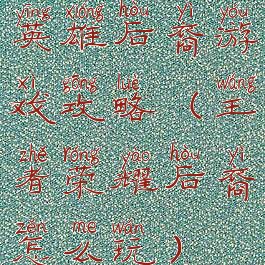 yīng xióng hòu yì yóu
英雄后裔游
xì gōng lüè wáng
戏攻略（王
zhě róng yào hòu yì
者荣耀后裔
zěn me wán
怎么玩）